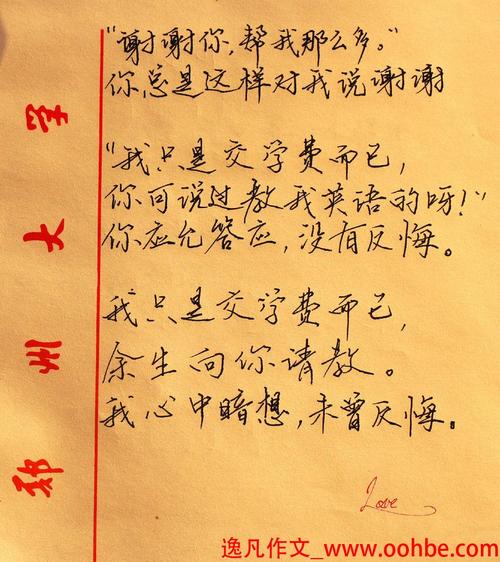 "谢谢你，帮我那么多。"
你总是这样对我说谢谢
"我只是交学费而已，
你可说过教我英语的呀！"
你应允答应，没有反悔。
我只是交学费而已，
余生向你请教。
我心中暗想，未曾反悔。
Love
郑州大学
逸凡作文_www.oohbe.com